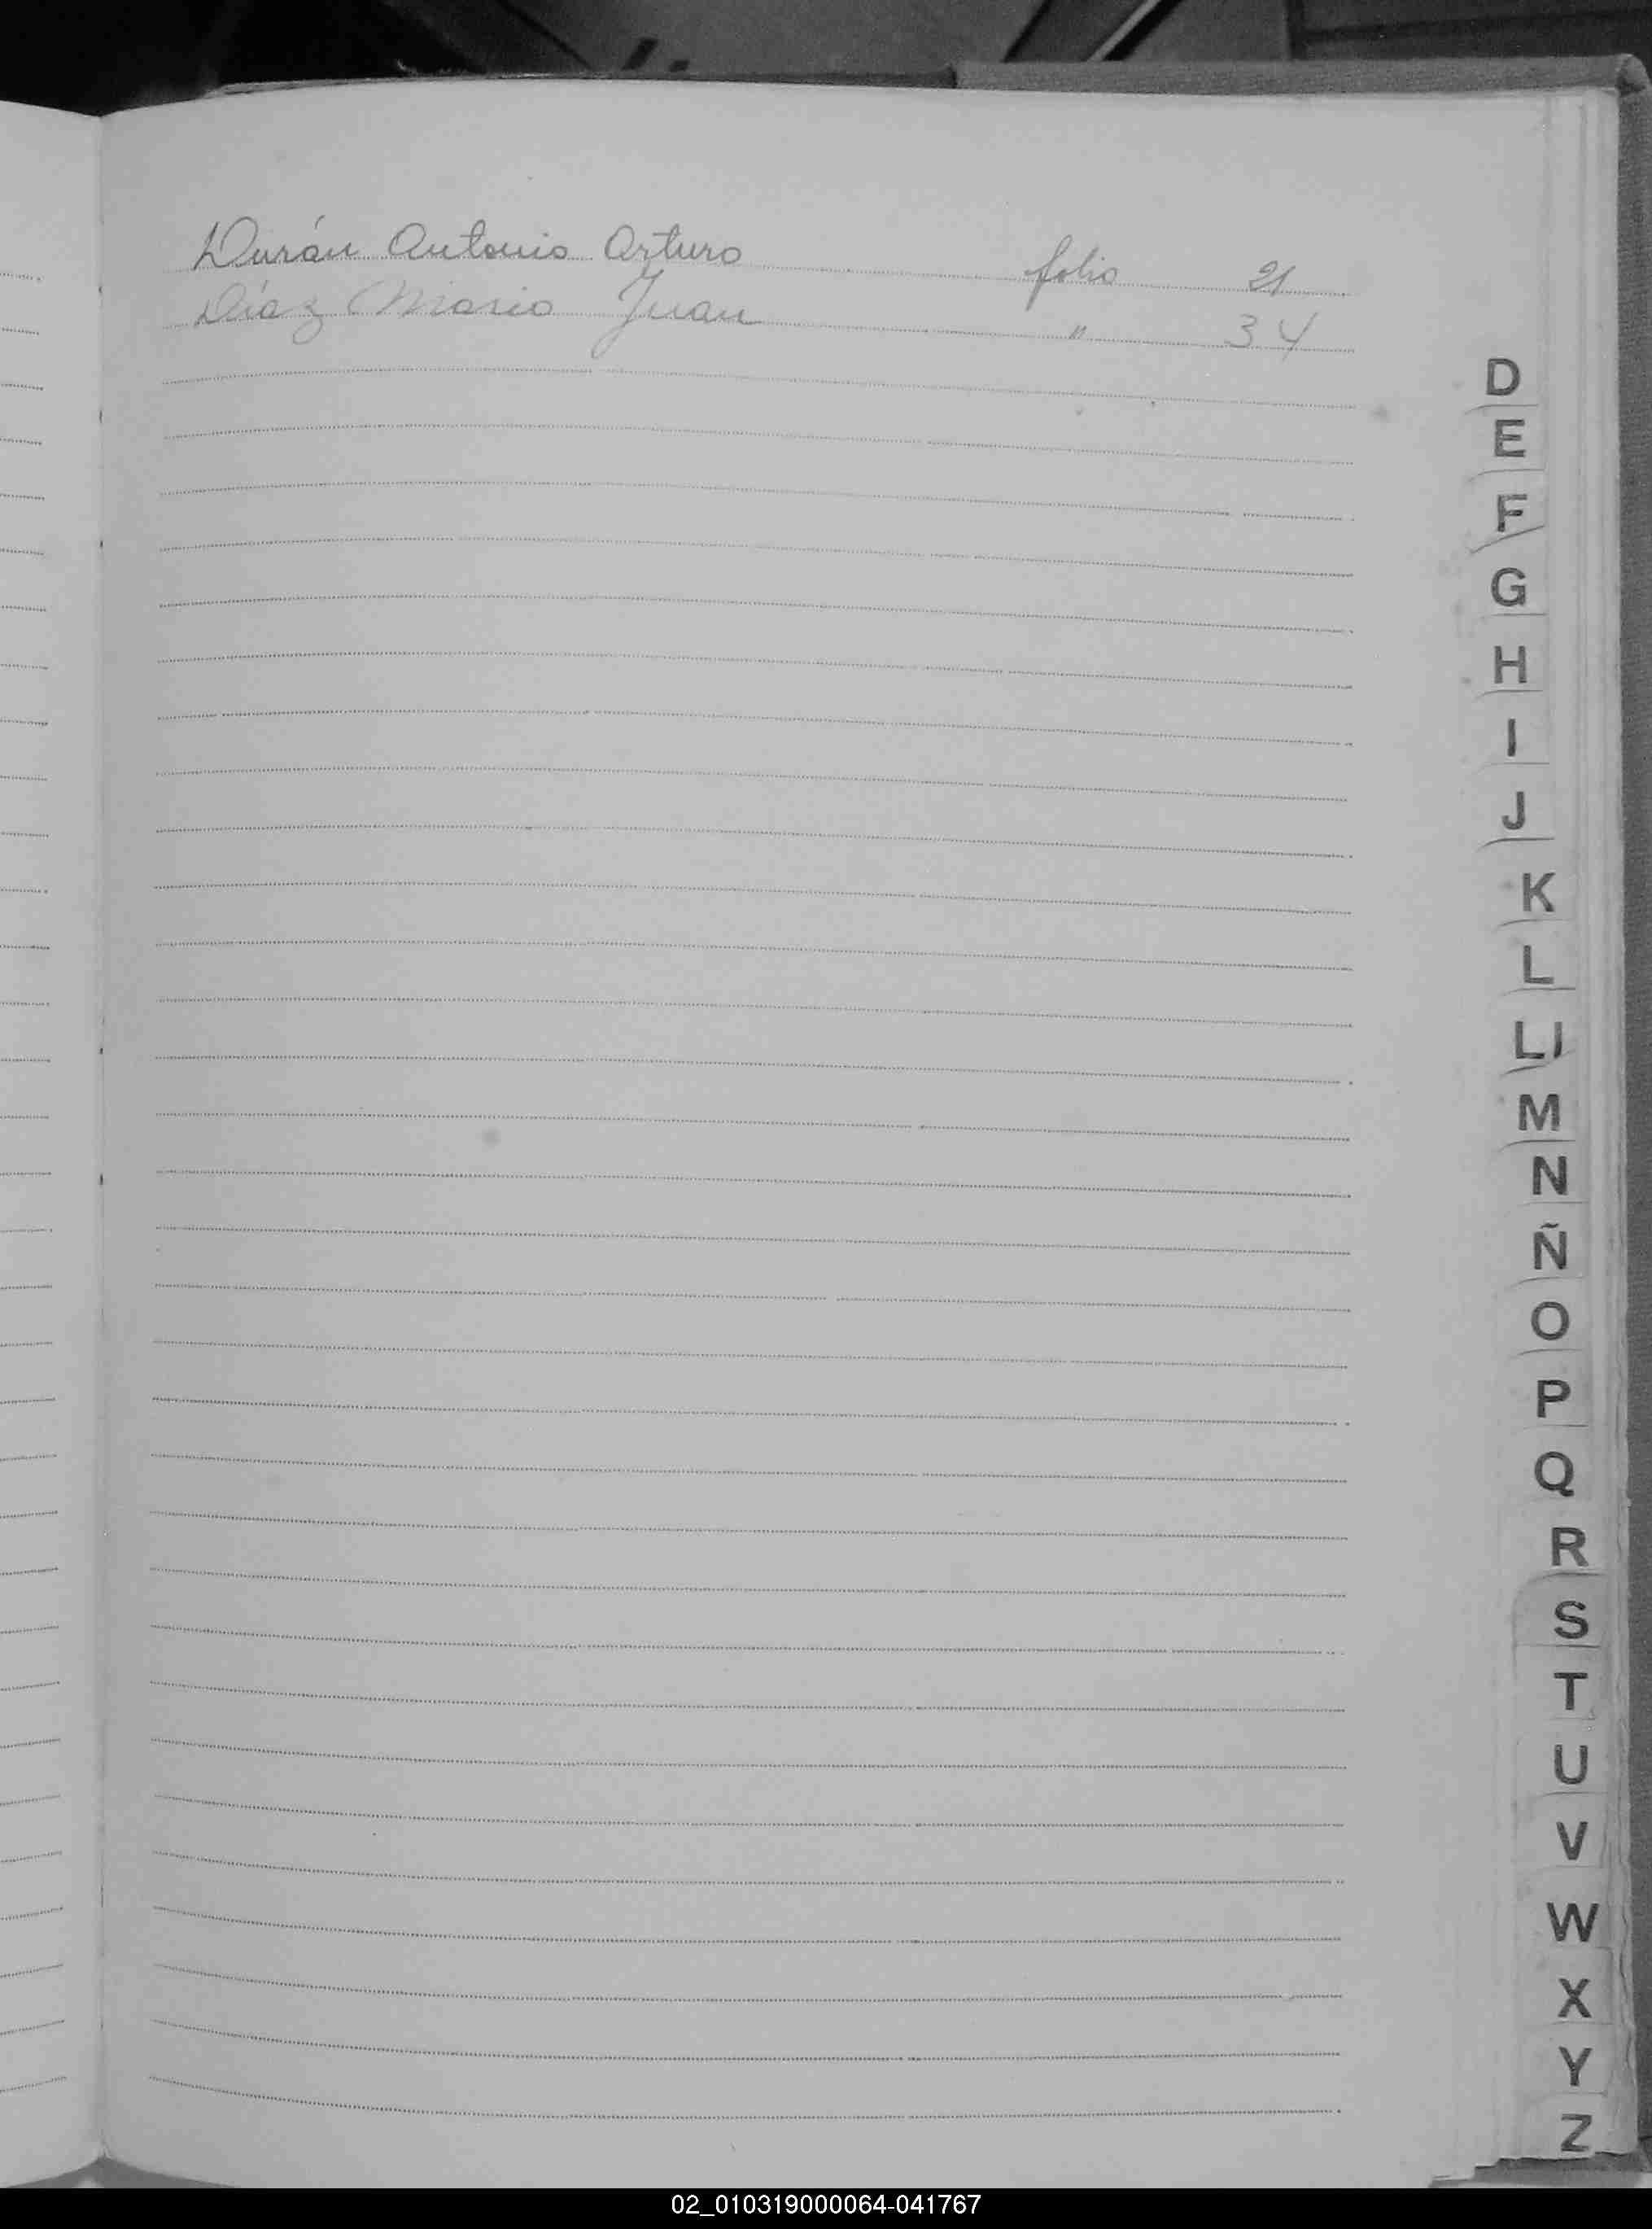 Durán Antonio Arturo folio 21
Díaz Mario Juan " 34
D
E
F
G
H
I
J
K
L
Ll
M
N
Ñ
O
P
Q
R
S
T
U
V
W
X
Y
Z
02_010319000064-041767